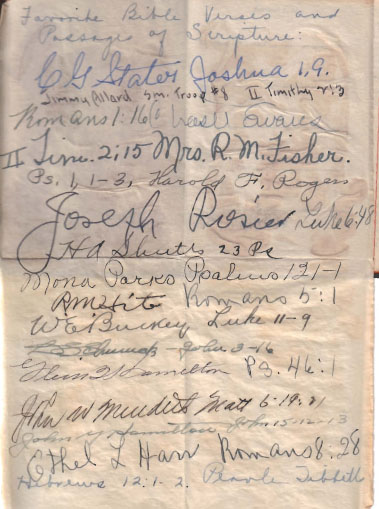 Favorite Bible Verses and
Passages of Scripture:
C G Stater Joshua 1,9.
Jimmy Allard Sm. Troop #8 II Timothy 2:3
Romans 1:16
II Tim. 2;15 Mrs. R. M. Fisher.
Ps. 1, 1-3, Harold F. Rogers
Joseph Rosier Luke 6:48
H A Shutts 23 Ps
Mona Parks Psalms 121-1
R M Hite Romans 5:1
W E Buckey Luke 11-9
John 3-16
Glenn Hamilton Ps. 46:1
John W Meredith Matt 6-19:21
John Hamilton John 15-12-13
Ethel L Harr Romans 8.28
Hebrews 12:1-2. Pearle Tibbitt